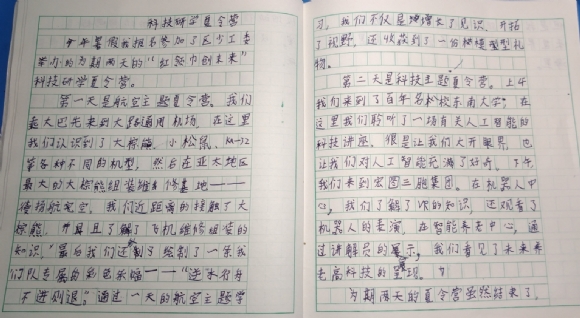 科技研学夏令营
今年暑假我报名参加了区少工委
举办的为期两天的“红领巾创未来”
科技研学夏令营。
第一天是航空主题夏令营。我们
乘大巴先来到大路通用机场，在这里
我们认识到了大棕熊、小松鼠、
等各种不同的机型，然后在亚太地区
最大的大棕熊组装维修基地——
我们近距离的接触了大
棕熊，并且了解了飞机维修组装的
知识，最后我们还制绘制了一条我
们队专属的彩色 ——“逆水行舟
不进则退。”通过一天的航空主题学
习，我们不仅是地增长了见识、开拓
了视野，还收获到了一份 模型礼
物。
第二天是科技主题夏令营。上午
我们来到了百年名校东南大学，在
这里我们聆听了一场有关人工智能的
科技讲座，很是让我们大开眼界，也
让我们对人工智能充满了好奇。下午，
我们来到宏图三胞集团。在机器人中
心，我们了解了VR的知识，还观看了
机器人的表演，在智能养老中心，通
过讲解员的展示，我们看见了未来养
老高科技的呈现。
为期两天的夏令营虽然结束了，